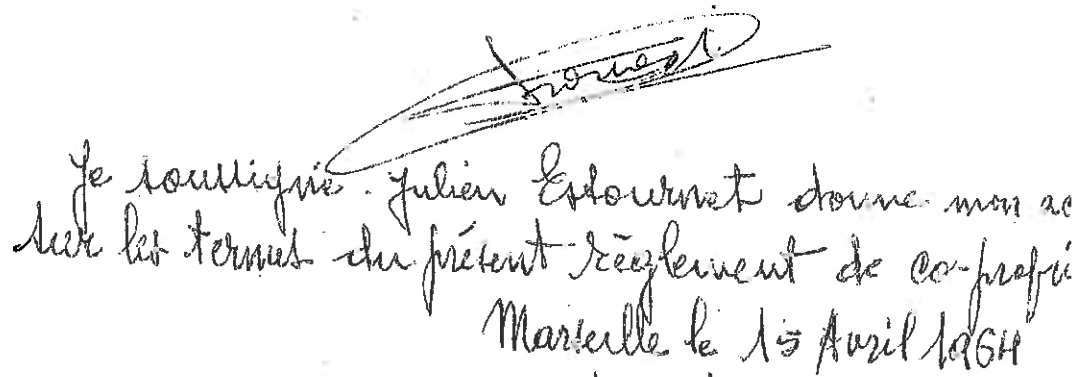 Je soussigné. Julien Estournet donne mon ac
sur les termes du présent règlement de co-propri
Marseille le 15 Avril 1964